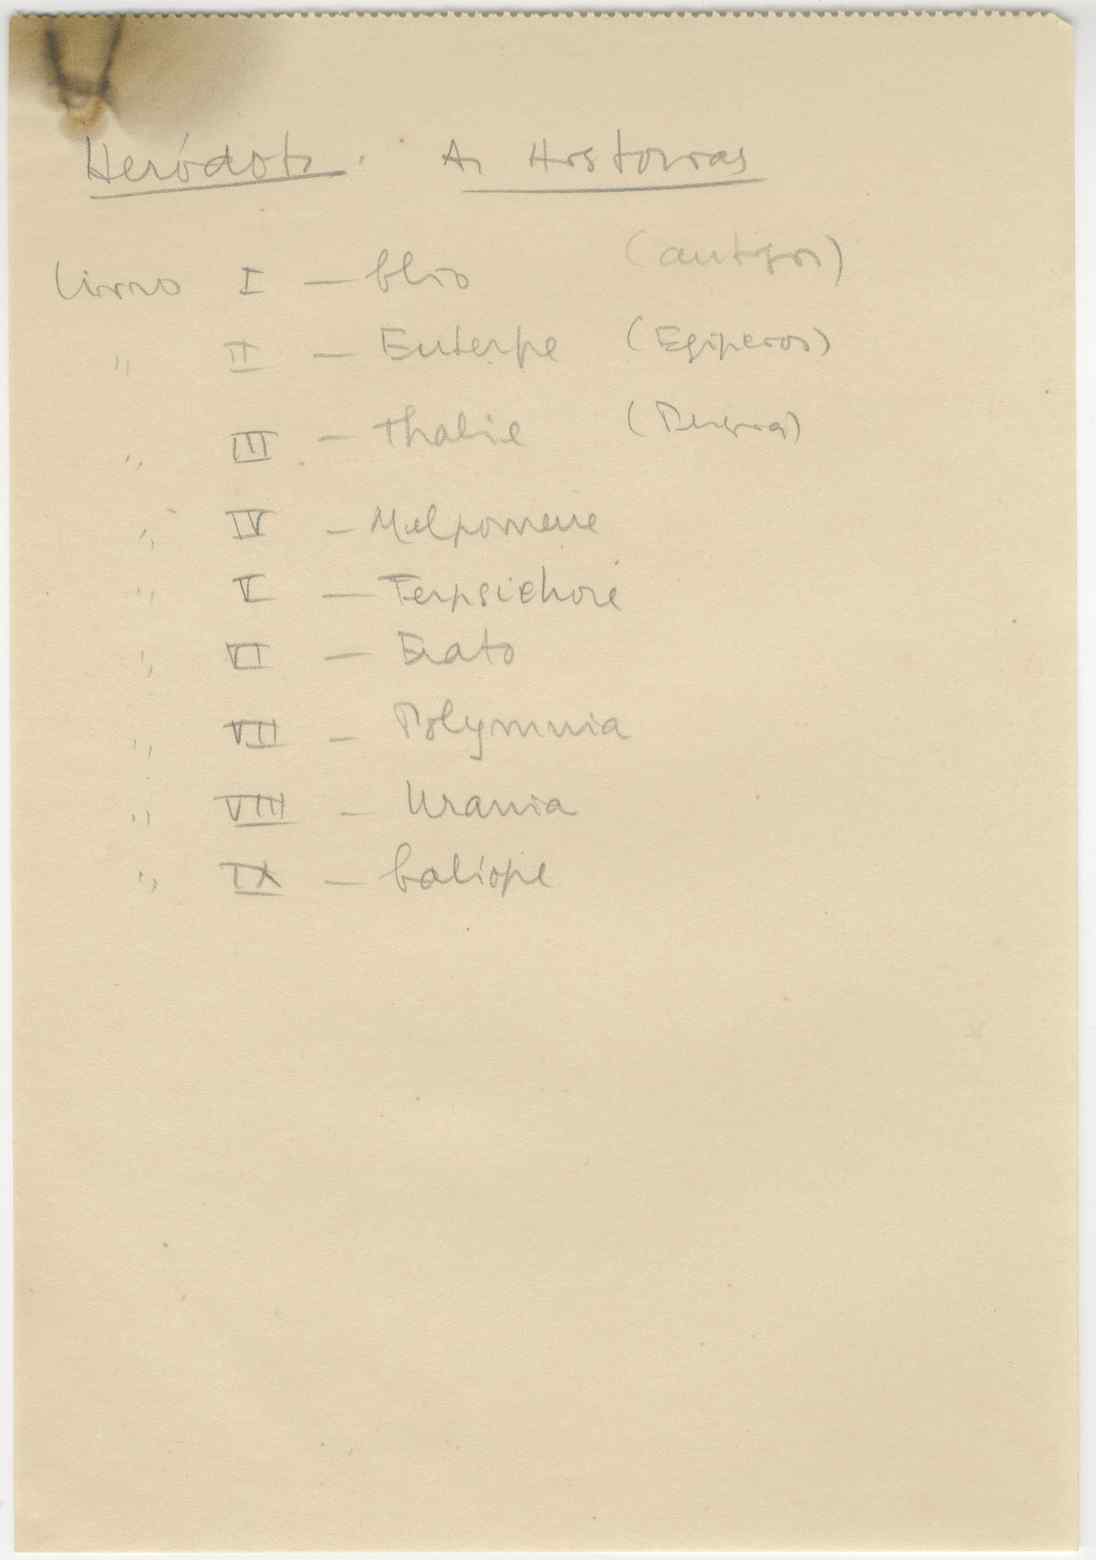 Heródoto. As Histórias
Livro I — Clio (antigos)
" II — Euterpe (Egipcios)
" III — Thalie (Persas)
" IV — Melpomene
" V — Terpsichore
" VI — Erato
" VII — Polymnia
" VIII — Urania
" IX — Caliope